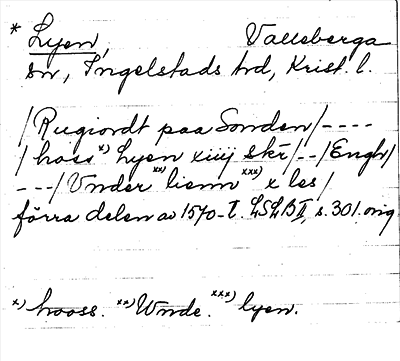 * Lyen, Valleberga
sn, Ingelstads hd, Krist. l.
/Rugiordt paa Sonden/----
/hoss x) Lyen xiiij skr/--/Engh/
---/Vnder xx) lienn xxx) x les/
förra delen av 1570-t. LSLB II, s. 301. orig
x) hooss. xx) Wnde. xxx) lyen.